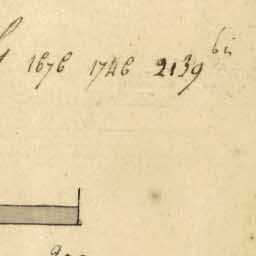 1676 1746 2139 bis